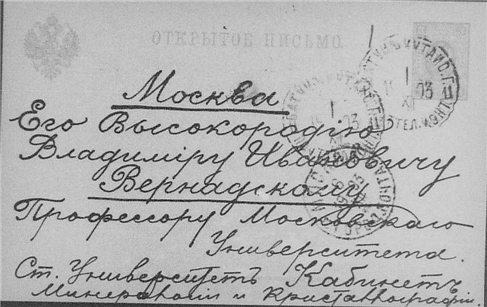 ОТКРЫТОЕ ПИСЬМО.
Москва
Его Высокородію
Владиміру Ивановичу
Вернадскому
Профессору Московскаго
Университета.
Ст. Университетъ Кабинетъ
Минералогіи и Кристаллографіи.